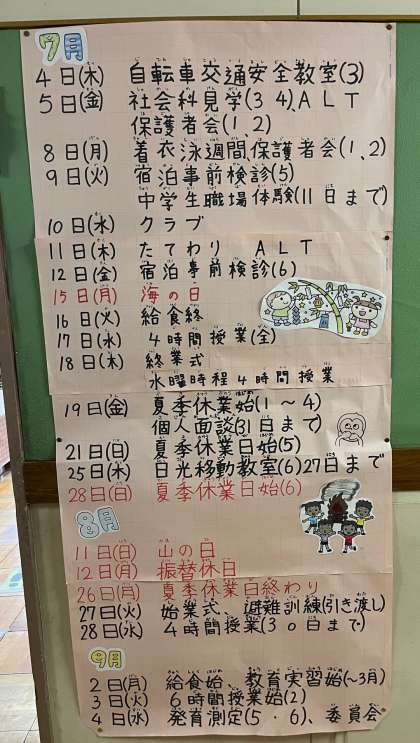 7月
4日(木) 自転車交通安全教室(3)
5日(金) 社会科見学(3 4)、ALT
保護者会(1、2)
8日(月) 着衣泳週間、保護者会(1、2)
9日(火) 宿泊事前検診(5)
中学生職場体験(11日まで)
10日(水) クラブ
11日(木) たてわり ALT
12日(金) 宿泊事前検診(6)
15日(月) 海の日
16日(火) 給食終
17日(水) 4時間授業(全)
18日(木) 終業式
水曜時程4時間授業
19日(金) 夏季休業始(1〜4)
個人面談(31日まで)
21日(日) 夏季休業日始(5)
25日(木) 日光移動教室(6)27日まで
28日(日) 夏季休業日始(6)
8月
11日(日) 山の日
12日(月) 振替休日
26日(月) 夏季休業日終わり
27日(火) 始業式、避難訓練(引き渡し)
28日(水) 4時間授業(30日まで)
9月
2日(月) 給食始、教育実習始(〜3月)
3日(火) 6時間授業始(2)
4日(水) 発育測定(5・6)、委員会